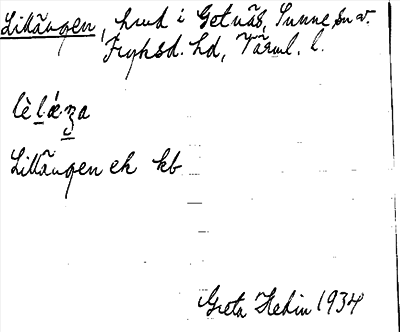 Lillängen, hmd i Getnäs, Sunne sn v.
Fryksd. hd, Värml. l.
lèl̲ǽ.ŋa
Lillängen ek kb
Greta Hedin 1934